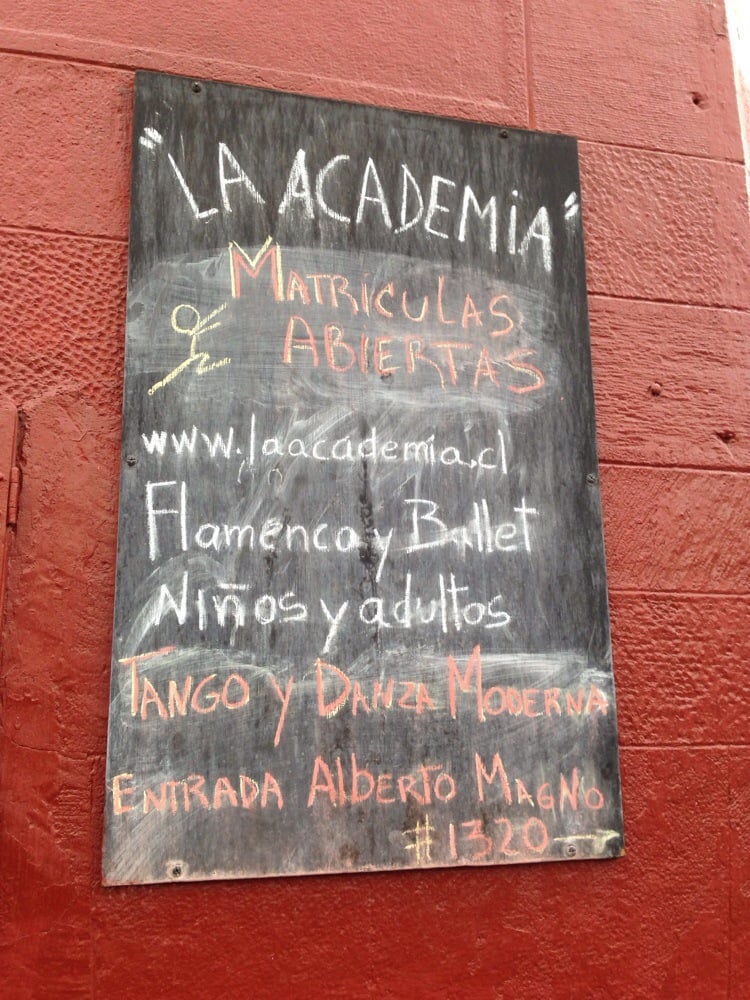 "LA ACADEMiA"
MATRiCULAS
ABiERTAS
www.laacademia.cl
Flamenco y Ballet
Niños y adultos
TANGO y DANZA MODERNA
ENTRADA AlBERTO MAGNO
#1320→